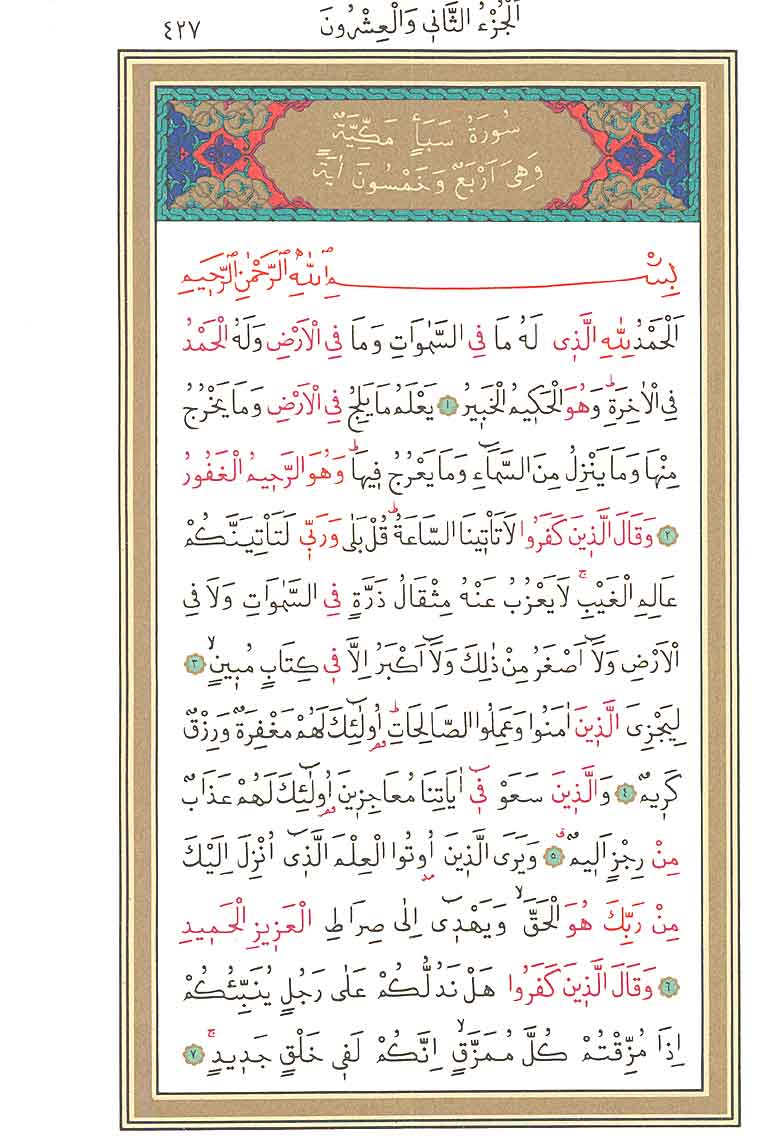 اَلْجُزْءُ الثَّانٖي وَالْعِشْرُونَ ٤٢٧
سُورَةُ سَبَأٍ مَكِّيَّةٌ
وَهِىَ اَرْبَعٌ وَخَمْسُونَ اٰيَةً
بِسْمِ اللّٰهِ الرَّحْمٰنِ الرَّحٖيمِ
اَلْحَمْدُ لِلّٰهِ الَّذٖى لَهُ مَا فِى السَّمٰوَاتِ وَمَا فِى الْاَرْضِ وَلَهُ الْحَمْدُ
فِى الْاٰخِرَةِؕ وَهُوَ الْحَكٖيمُ الْخَبٖيرُ ﴿١﴾ يَعْلَمُ مَا يَلِجُ فِى الْاَرْضِ وَمَا يَخْرُجُ
مِنْهَا وَمَا يَنْزِلُ مِنَ السَّمَٓاءِ وَمَا يَعْرُجُ فٖيهَاؕ وَهُوَ الرَّحٖيمُ الْغَفُورُ
﴿٢﴾ وَقَالَ الَّذٖينَ كَفَرُوا لَا تَاْتٖينَا السَّاعَةُؕ قُلْ بَلٰى وَرَبّٖى لَتَاْتِيَنَّكُمْ
عَالِمِ الْغَيْبِۚ لَا يَعْزُبُ عَنْهُ مِثْقَالُ ذَرَّةٍ فِى السَّمٰوَاتِ وَلَا فِى
الْاَرْضِ وَلَٓا اَصْغَرُ مِنْ ذٰلِكَ وَلَٓا اَكْبَرُ اِلَّا فٖى كِتَابٍ مُبٖينٍۙ ﴿٣﴾
لِيَجْزِىَ الَّذٖينَ اٰمَنُوا وَعَمِلُوا الصَّالِحَاتِؕ اُولٰٓئِكَ لَهُمْ مَغْفِرَةٌ وَرِزْقٌ
كَرٖيمٌ ﴿٤﴾ وَالَّذٖينَ سَعَوْ فٖٓى اٰيَاتِنَا مُعَاجِزٖينَ اُولٰٓئِكَ لَهُمْ عَذَابٌ
مِنْ رِجْزٍ اَلٖيمٌ ﴿٥﴾ وَيَرَى الَّذٖينَ اُوتُوا الْعِلْمَ الَّذٖٓى اُنْزِلَ اِلَيْكَ
مِنْ رَبِّكَ هُوَ الْحَقَّۙ وَيَهْدٖٓى اِلٰى صِرَاطِ الْعَزٖيزِ الْحَمٖيدِ
﴿٦﴾ وَقَالَ الَّذٖينَ كَفَرُوا هَلْ نَدُلُّكُمْ عَلٰى رَجُلٍ يُنَبِّئُكُمْ
اِذَا مُزِّقْتُمْ كُلَّ مُمَزَّقٍۙ اِنَّكُمْ لَفٖى خَلْقٍ جَدٖيدٍۚ ﴿٧﴾